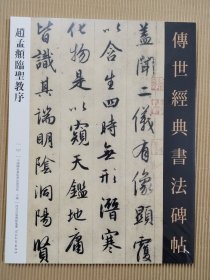 傳世經典書法碑帖
趙孟頫臨聖教序
蓋聞二儀有像顯覆
以含生四時無形潛寒
化物是以窺天鑑地
皆識其端明陰洞陽賢